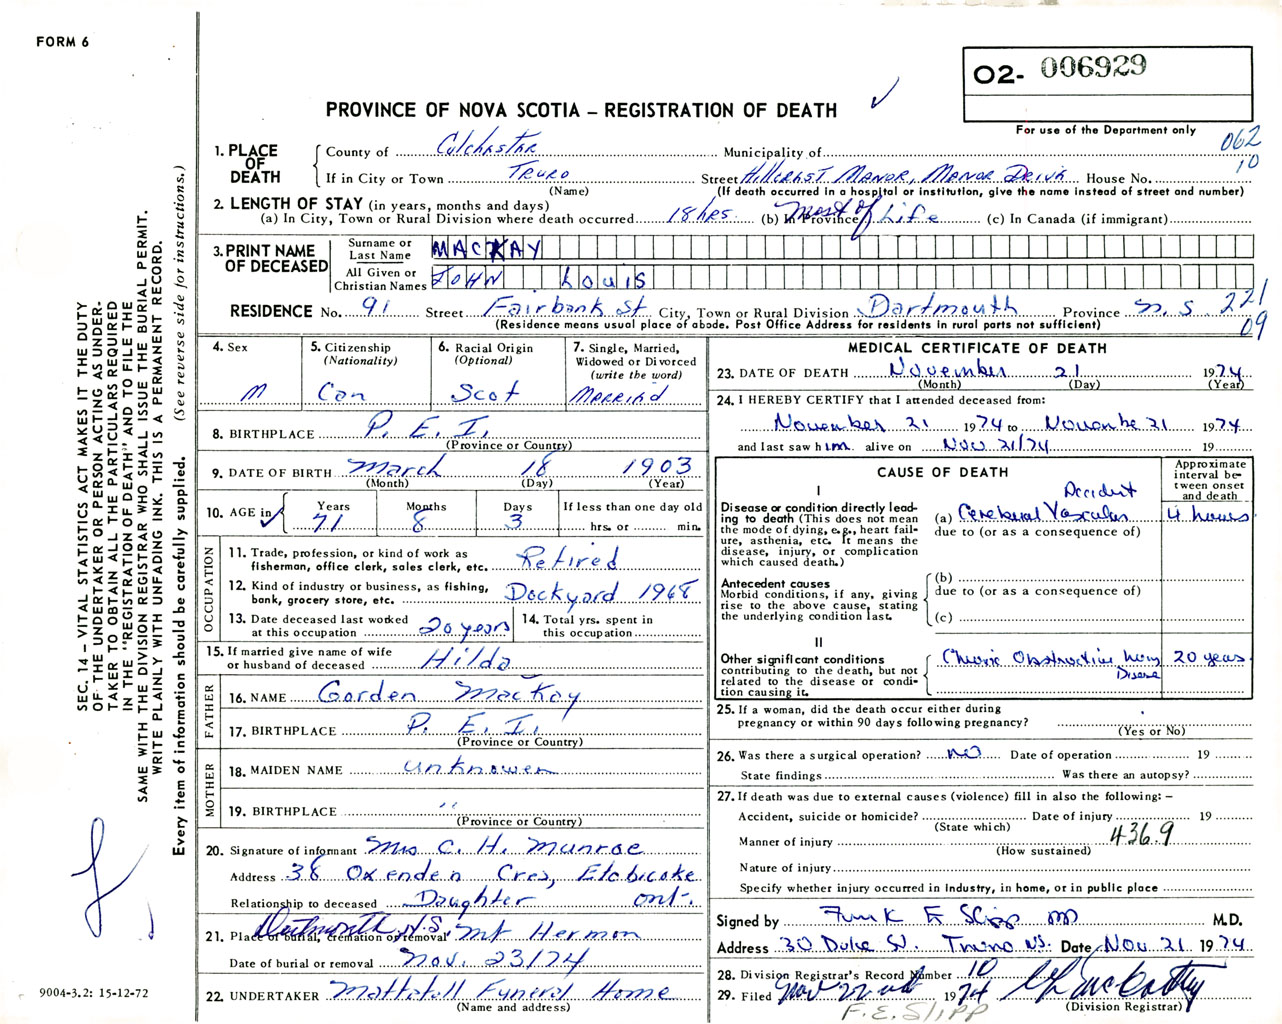 FORM 6
O2- 006929
PROVINCE OF NOVA SCOTIA – REGISTRATION OF DEATH
For use of the Department only
062
10
1. PLACE OF DEATH
County of Colchester Municipality of
If in City or Town Truro Street Hillcrest Manor, Manor Drive House No.
(Name) (If death occurred in a hospital or institution, give the name instead of street and number)
2. LENGTH OF STAY (in years, months and days)
(a) In City, Town or Rural Division where death occurred 18 hrs. (b) In Province Most of Life (c) In Canada (if immigrant)
3. PRINT NAME OF DECEASED
Surname or Last Name MACKAY
All Given or Christian Names JOHN LOUIS
RESIDENCE No. 91 Street Fairbank St City, Town or Rural Division Dartmouth Province N.S
221
09
(Residence means usual place of abode. Post Office Address for residents in rural parts not sufficient)
4. Sex M
5. Citizenship (Nationality) Can
6. Racial Origin (Optional) Scot
7. Single, Married, Widowed or Divorced (write the word) Married
8. BIRTHPLACE P. E. I.
(Province or Country)
9. DATE OF BIRTH March 18 1903
(Month) (Day) (Year)
10. AGE in Years 71 Months 8 Days 3 If less than one day old hrs. or min.
OCCUPATION
11. Trade, profession, or kind of work as fisherman, office clerk, sales clerk, etc. Retired
12. Kind of industry or business, as fishing, bank, grocery store, etc. Dockyard 1968
13. Date deceased last worked at this occupation 20 years
14. Total yrs. spent in this occupation
15. If married give name of wife or husband of deceased Hilda
FATHER
16. NAME Gorden MacKay
17. BIRTHPLACE P. E. I.
(Province or Country)
MOTHER
18. MAIDEN NAME unknowen
19. BIRTHPLACE "
(Province or Country)
20. Signature of informant Mrs C. H. Munroe
Address 38 Oxenden Cres, Etobicoke Ont.
Relationship to deceased Daughter
21. Place of burial, cremation or removal Dartmouth, N.S. Mt Hermon
Date of burial or removal Nov. 23/74
22. UNDERTAKER Mattatall Funeral Home
(Name and address)
MEDICAL CERTIFICATE OF DEATH
23. DATE OF DEATH November 21 1974
(Month) (Day) (Year)
24. I HEREBY CERTIFY that I attended deceased from:
November 21 1974 to November 21 1974
and last saw him alive on Nov 21/74 19
CAUSE OF DEATH
Approximate interval between onset and death
I
Disease or condition directly leading to death (This does not mean the mode of dying, e.g., heart failure, asthenia, etc. It means the disease, injury, or complication which caused death.)
(a) Cerebral Vascular Accident 4 hours
due to (or as a consequence of)
Antecedent causes
Morbid conditions, if any, giving rise to the above cause, stating the underlying condition last.
(b)
due to (or as a consequence of)
(c)
II
Other significant conditions contributing to the death, but not related to the disease or condition causing it.
Chronic Obstructive Lung Disease 20 years
25. If a woman, did the death occur either during pregnancy or within 90 days following pregnancy?
(Yes or No)
26. Was there a surgical operation? No Date of operation 19
State findings Was there an autopsy?
27. If death was due to external causes (violence) fill in also the following: –
Accident, suicide or homicide? Date of injury 19
(State which)
Manner of injury 436.9
(How sustained)
Nature of injury
Specify whether injury occurred in Industry, in home, or in public place
Signed by Frank E Slipp MD M.D.
Address 30 Duke St. Truro NS. Date Nov 21 1974
28. Division Registrar's Record Number 10
29. Filed Nov 22nd 1974
(Division Registrar)
F. E. Slipp
SEC. 14 – VITAL STATISTICS ACT MAKES IT THE DUTY
OF THE UNDERTAKER OR PERSON ACTING AS UNDER-
TAKER TO OBTAIN ALL THE PARTICULARS REQUIRED
IN THE "REGISTRATION OF DEATH" AND TO FILE THE
SAME WITH THE DIVISION REGISTRAR WHO SHALL ISSUE THE BURIAL PERMIT.
WRITE PLAINLY WITH UNFADING INK. THIS IS A PERMANENT RECORD.
Every item of information should be carefully supplied. (See reverse side for instructions.)
9004-3.2: 15-12-72